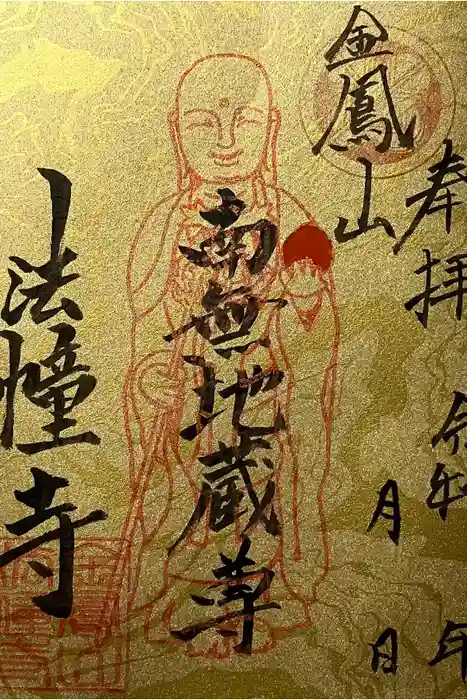 奉拝 令和 年
月 日
金鳳山
南無地蔵尊
法幢寺